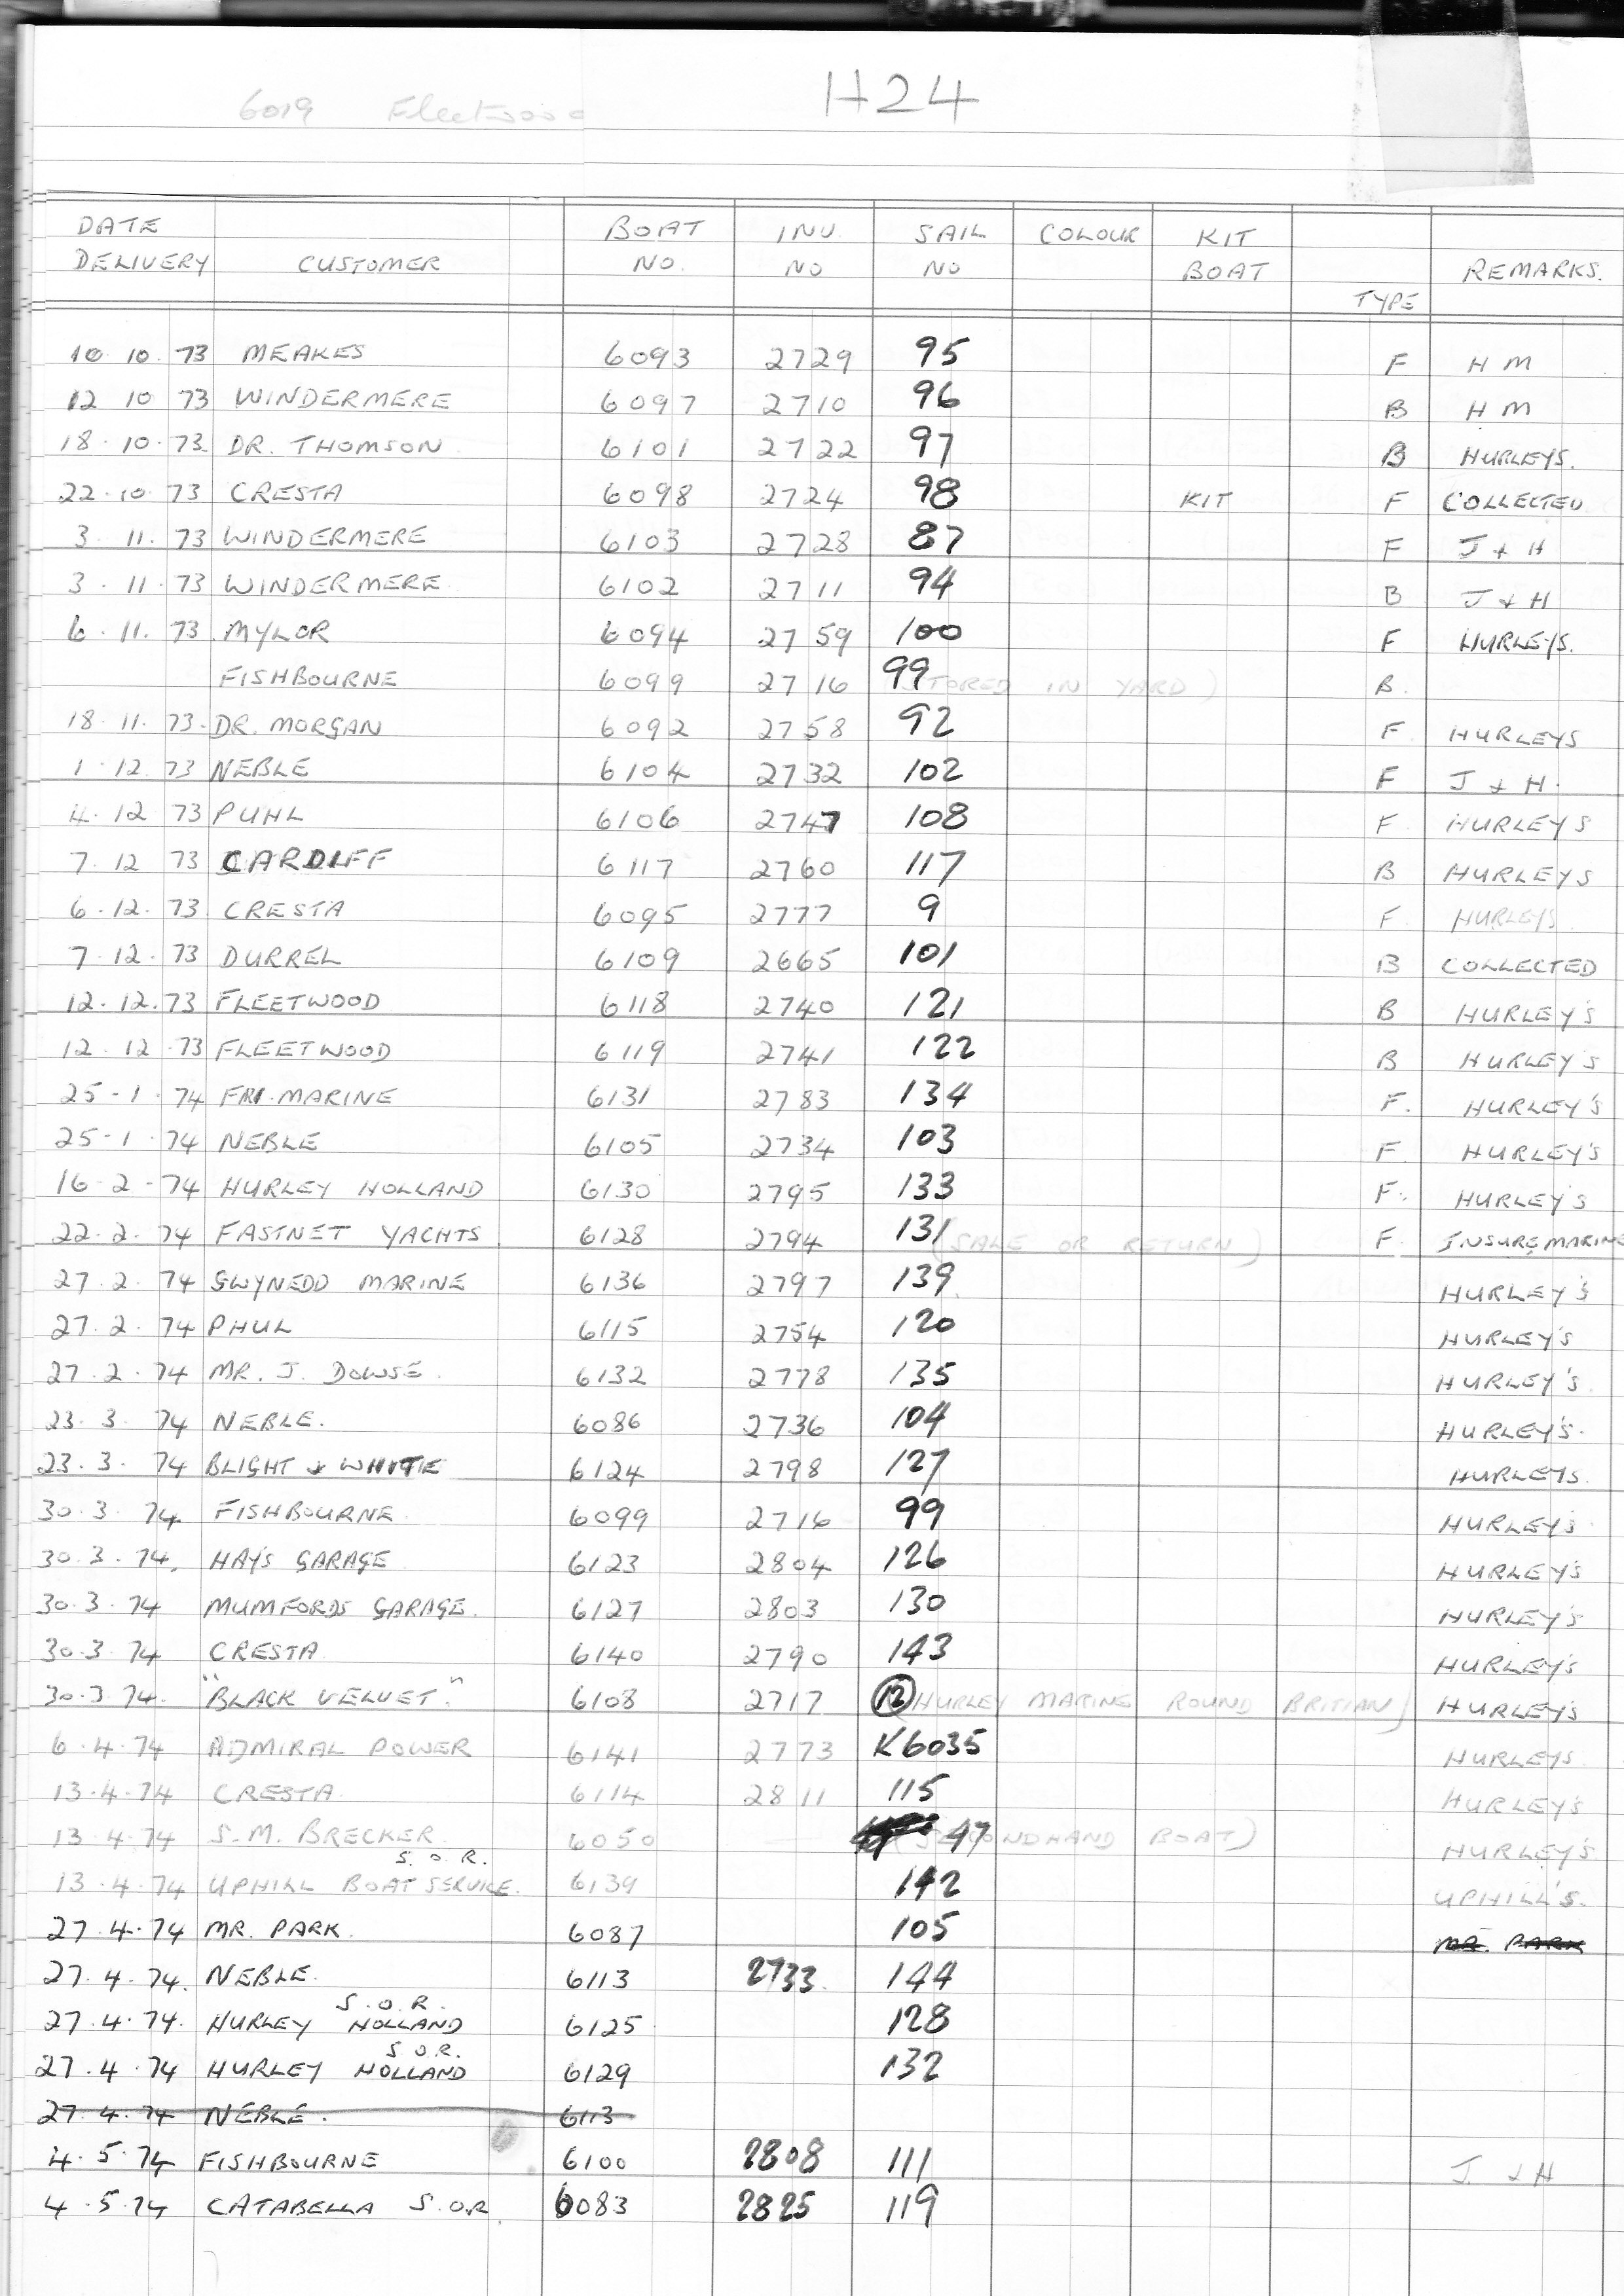 6019 Fleetwood
H24
DATE DELIVERY CUSTOMER BOAT NO. INV. NO SAIL NO COLOUR KIT BOAT TYPE REMARKS.
10 10. 73 MEAKES 6093 2729 95 F H M
12 10 73 WINDERMERE 6097 2710 96 B H M
18.10.73 DR. THOMSON 6101 2722 97 B HURLEYS.
22.10.73 CRESTA 6098 2724 98 KIT F COLLECTED
3. 11. 73 WINDERMERE 6103 2728 87 F J + H
3. 11. 73 WINDERMERE 6102 2711 94 B J + H
6. 11. 73 MYLOR 6094 2759 100 F HURLEYS.
FISHBOURNE 6099 2716 99 (STORED IN YARD) B.
18.11.73. DR. MORGAN 6092 2758 92 F. HURLEYS
1.12.73 NEBLE 6104 2732 102 F J + H.
4.12 73 PUHL 6106 2747 108 F HURLEYS
7.12 73 CARDIFF 6117 2760 117 B HURLEYS
6.12.73 CRESTA 6095 2777 9 F. HURLEYS.
7.12.73 DURREL 6109 2665 101 B COLLECTED
12.12.73 FLEETWOOD 6118 2740 121 B HURLEY'S
12.12.73 FLEETWOOD 6119 2741 122 B HURLEY'S
25-1.74 FRI. MARINE 6131 2783 134 F. HURLEY'S
25-1.74 NEBLE 6105 2734 103 F. HURLEY'S
16-2-74 HURLEY HOLLAND 6130 2795 133 F. HURLEY'S
22.2.74 FASTNET YACHTS 6128 2794 131 (SALE OR RETURN) F. INSURE MARINE
27.2.74 GWYNEDD MARINE 6136 2797 139 HURLEY'S
27.2.74 PHUL 6115 2754 120 HURLEY'S
27.2.74 MR. J. DOWSE. 6132 2778 135 HURLEY'S.
23.3.74 NEBLE. 6086 2736 104 HURLEY'S.
23.3.74 BLIGHT & WHITE 6124 2798 127 HURLEYS.
30.3.74 FISHBOURNE 6099 2716 99 HURLEY'S
30.3.74. HAY'S GARAGE 6123 2804 126 HURLEY'S
30.3.74 MUMFORDS GARAGE. 6127 2803 130 HURLEY'S
30.3.74 CRESTA 6140 2790 143 HURLEY'S
30.3.74. "BLACK VELVET." 6108 2717 12 (HURLEY MARINE ROUND BRITIAN) HURLEY'S
6.4.74 ADMIRAL POWER 6141 2773 K6035 HURLEYS
13.4.74 CRESTA 6114 2811 115 HURLEY'S
13.4.74 S.M. BRECKER. 6050 47 (SECONDHAND BOAT) HURLEY'S
13.4.74 UPHILL BOAT SERVICE. S.O.R. 6139 142 UPHILL'S.
27.4.74 MR. PARK. 6087 105 MR. PARK
27.4.74. NEBLE. 6113 2733 144
27.4.74. HURLEY HOLLAND S.O.R. 6125 128
27.4.74 HURLEY HOLLAND S.O.R. 6129 132
27.4.74 NEBLE. 6113
4.5.74 FISHBOURNE 6100 2808 111 J. + H
4.5.74 CATABELLA S.O.R. 6083 2825 119